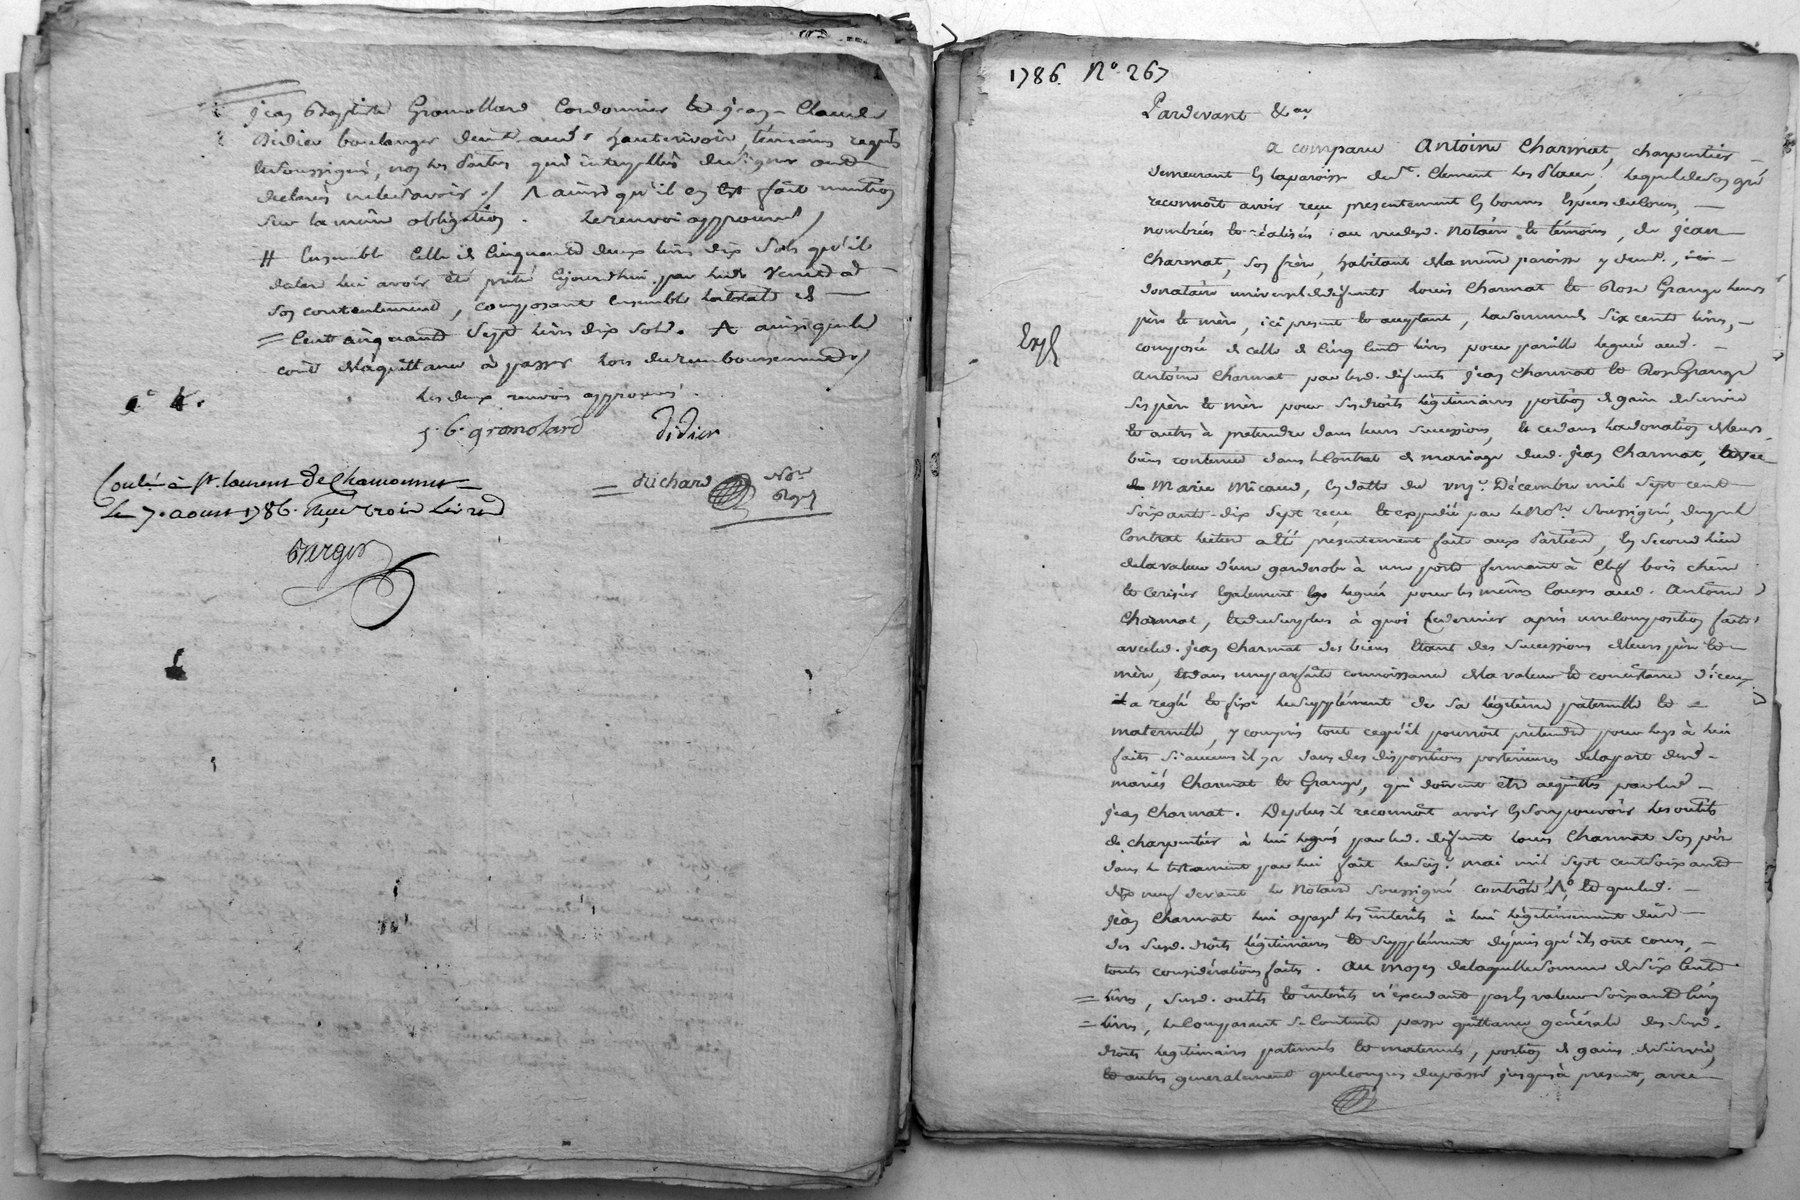 Jean Baptiste Gromollard Cordonnier et Jean Claude
Didier boulanger demt. aud. hauterivoire, témoins requis
et soussignés, non les parties qui interpellées de signer ont
declaré ne le savoir ./. ainsi qu'il en est fait mention
sur la même obligation. Le renvoi approuvé /
# Ensemble celle de Cinquante deux livres dix sols qu'il
declare lui avoir été prêté cejourdhui par led.
son contentement, composant ensemble la totale de
= Cent cinquante sept livres dix sols. ainsi que le
coût de la quittance à passer lors du remboursement /
Les deux renvois approuvés.
J. B. gromolard Didier
Conlé à St. laurent de Chamousset
Le 7. aoust 1786. Reçu trois Livres
Richard Nore Royl
1786. N° 267
Pardevant &ca.
a comparu Antoine Charmat, charpentier
demeurant en la paroisse de St. Clement les Places, lequel de son gré
reconnoit avoir reçu presentement en bonnes Especes de Cours,
nombrées et réalisées au vu desd. Notaire et témoins, de Jean
Charmat, son frère, habitant de la même paroisse y demt.,
donataire universel de défunts Louis Charmat et Rose Grange leurs
père et mère, ici present et acceptant, la somme de Six cents livres,
composée de celle de Cinq Cents livres pour pareille léguée aud.
Expé
Antoine Charmat par lesd. défunts Jean Charmat et Rose Grange
ses père et mère pour ses droits légitimaires portion de gain de survie
et autres à pretendre dans leurs successions, et ce dans la donation de leurs
biens contenue dans le Contrat de mariage dud. Jean Charmat, avec
Marie Micaud, en datte du Décembre mil sept cent
soixante-dix sept reçu et expédié par le Nore. Soussigné, duquel
Contrat lecture a été presentement faite aux Parties, en second lieu
de la valeur d'une garderobe à une porte fermant à Clef bois chêne
et cerisier également légué pour les mêmes Causes aud. Antoine
Charmat, et du surplus à quoi ce dernier après une Composition faite
avec led. Jean Charmat des biens étant des successions de leurs père et
mère, et dans une parfaite connoissance de la valeur et consistance d'iceux
a reglé et fixé le supplément de sa légitime paternelle et
maternelle, y compris tout ce qu'il pourroit pretendre pour legs à lui
faits si aucuns il y a dans des dispositions posterieures de la part desd.
mariés Charmat et Grange, qui doivent être acquittés par led.
Jean Charmat. De plus il reconnoit avoir en son pouvoir les outils
de charpentier à lui légués par led. défunt Louis Charmat son père
dans le testament par lui fait le mai mil sept cent soixante
dix neuf devant le Notaire soussigné contrôlé, et que led.
Jean Charmat lui a payé les interêts à lui légitimement dûs
des susd. droits légitimaires et supplément depuis qu'ils ont couru,
toutes considérations faites. Au moyen de laquelle somme de Six Cents
= livres, susd. outils et interêts n'excedant pas en valeur soixante cinq
= livres, le Comparant se Contente passe quittance générale des susd.
droits legitimaires paternels et maternels, portion de gains de survie,
et autres generalement quelconques du passé jusqu'à present, avec